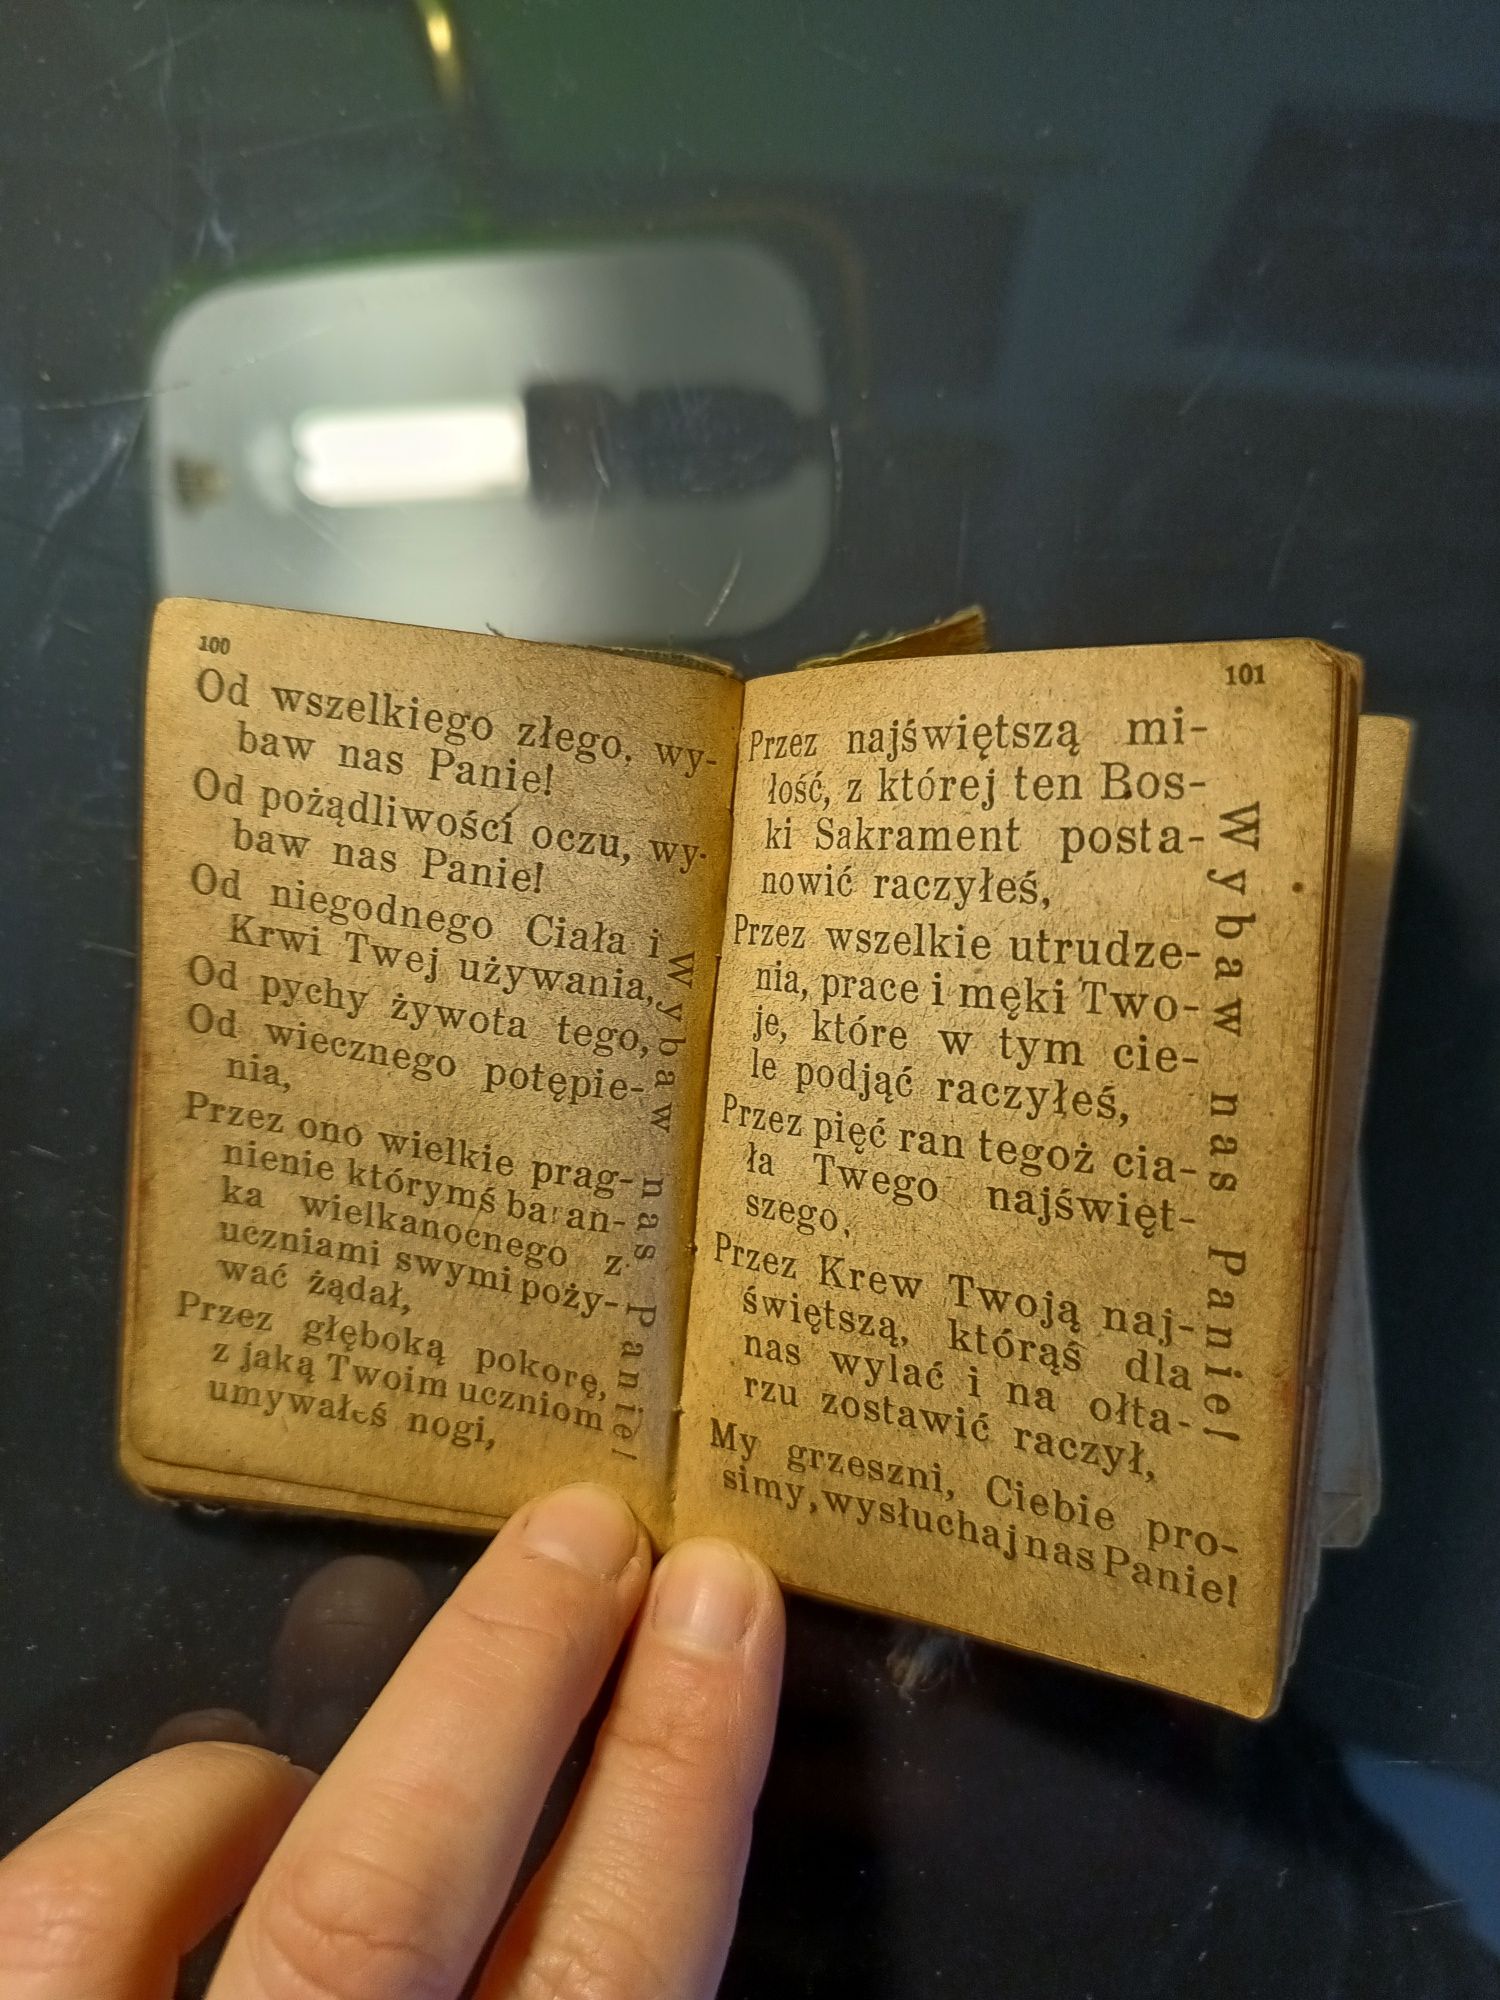 100
Od wszelkiego złego, wy-
baw nas Panie!
Od pożądliwości oczu, wy-
baw nas Panie!
Od niegodnego Ciała i
Krwi Twej używania,
Od pychy żywota tego,
Od wiecznego potępie-
nia,
Przez ono wielkie prag-
nienie którymś baran-
ka wielkanocnego z
uczniami swymi poży-
wać żądał,
Przez głęboką pokorę,
z jaką Twoim uczniom
umywałeś nogi,
Wybaw nas Panie!
101
Przez najświętszą mi-
łość, z której ten Bos-
ki Sakrament posta-
nowić raczyłeś,
Przez wszelkie utrudze-
nia, prace i męki Two-
je, które w tym cie-
le podjąć raczyłeś,
Przez pięć ran tegoż cia-
ła Twego najświęt-
szego,
Przez Krew Twoją naj-
świętszą, którąś dla
nas wylać i na ołta-
rzu zostawić raczył,
Wybaw nas Panie!
My grzeszni, Ciebie pro-
simy, wysłuchaj nas Panie!